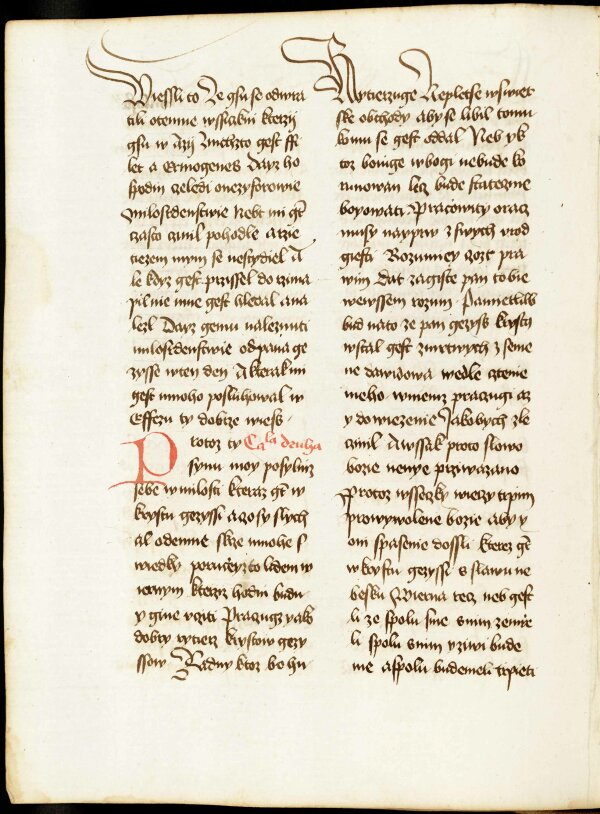 Wiessli to Ze gsu se odwra
tili odemne wssickni kterziz
gsu w Azij Znichzto gest ffi
let a Ermogenes Dayz ho
spodin czeledi onezyforowie
milosrdenstwie Nebt mi gt
czasto czinil pohodle a rzie
tiezem mym se nestydiel A
le kdyz gest przissel do rzima
pilnie mne gest hledal a na
lezl Dayz gemu naleznuti
milosrdenstwie od pana ge
zysse w ten den A kterak mi
gest mnoho posluhowal w
Effezu ty dobrze wiess
Protoz ty Cala druha
synu moy posylniz
sebe w milosti kteraz gt w
krystu gezyssi a czo sy slych
al odemne skrze mnohe s
wiedky poruczyz to lidem w
iernym kterzy hodni budu
y gine ucziti Praczugz yakz
dobry rytierz krystow gezy
ssow Zadny ktoz bohu
Rytierzuge Nepletse w swiet
ske obchody aby se libil tomu
komu se gest oddal Neb y k
toz boiuge w bogi nebude ko
runowan lecz bude stateczne
boyowati Praczowity oracz
musy nayprw z swych urod
giesti Rozumiey czoz pra
wim Dat zagiste pan tobie
we wssem rozum Pamettliw
bud na to ze pan gezyss krystus
wstal gest z mrtwych z seme
ne dawidowa wedle cztenie
meho w niemz praczugi az
y do wiezenie Jakobych zle
czinil A wssak proto slowo
bozie nenye przywazano
Protoz wsseczky wieczy trpim
pro wywolene bozie aby y
oni spasenie dossli kterez gt
w krystu gezyssi s slawu ne
besku Wierna rzecz neb gest
li ze spolu sme s nim zemrze
li spolu s nim y ziwi bude
me a spolu budemeli trpieti